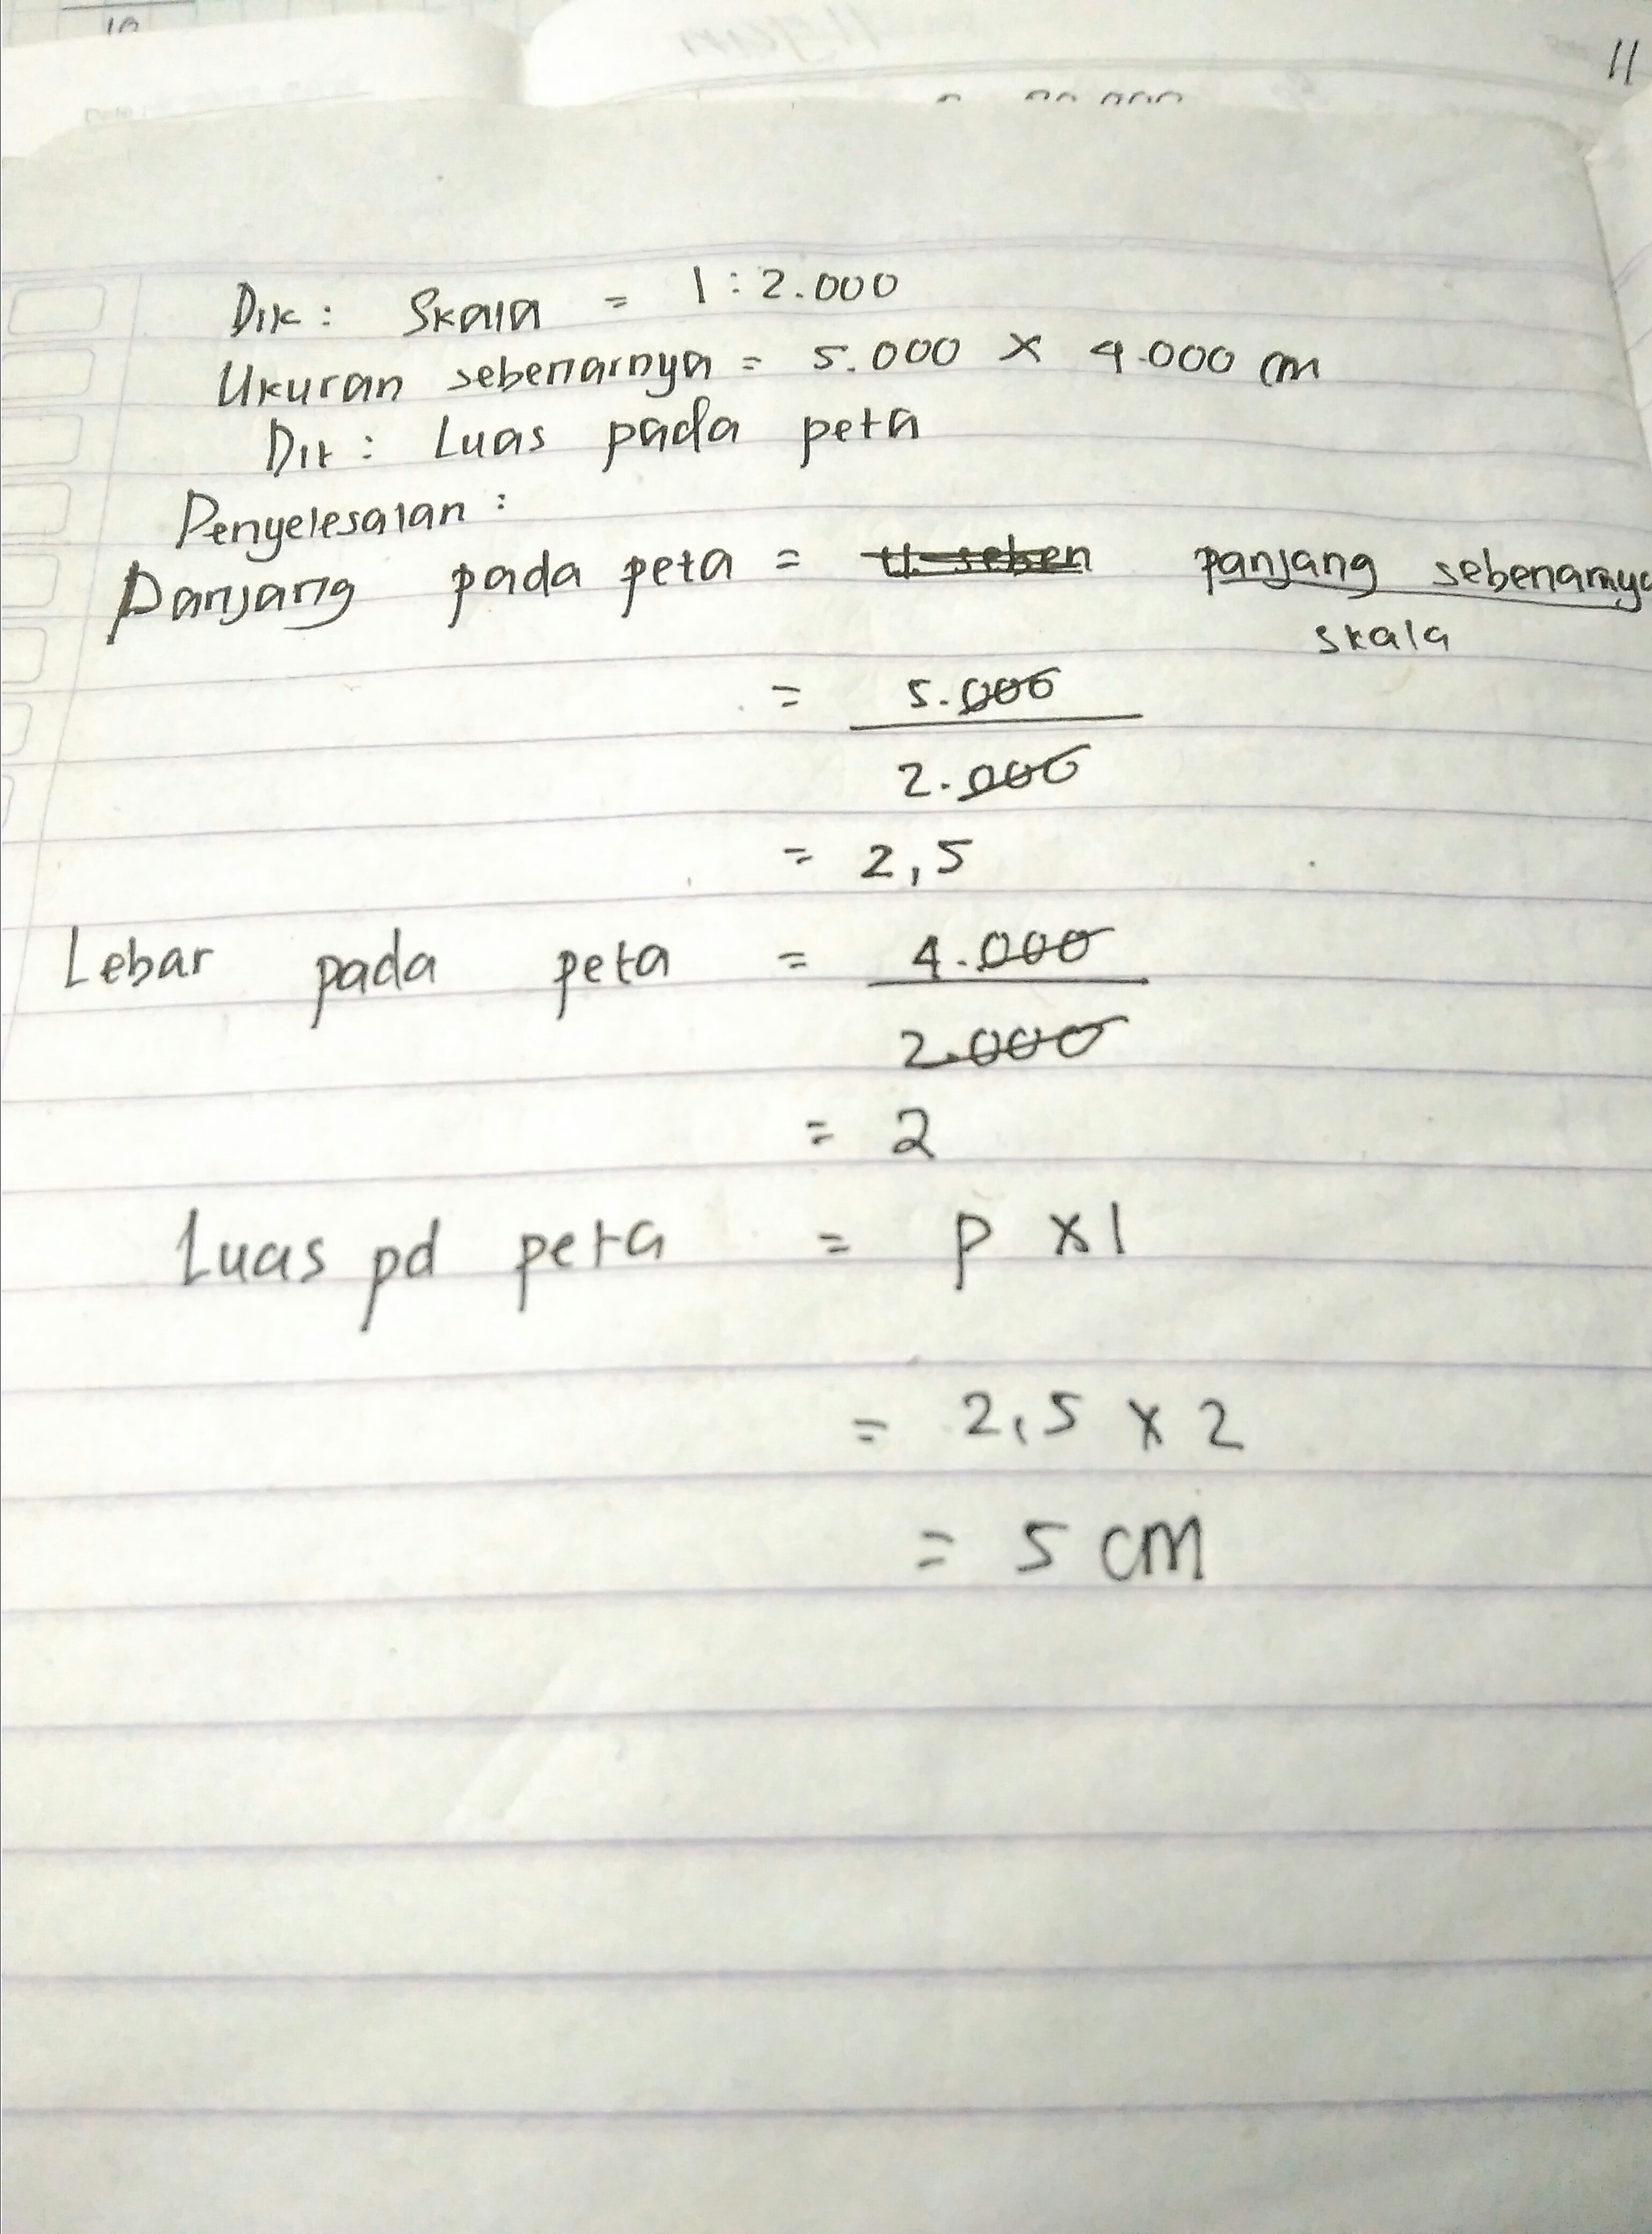 10
11
Dik : Skala = 1 : 2.000
Ukuran sebenarnya = 5.000 × 4.000 cm
Dit : Luas pada peta
Penyelesaian :
Panjang pada peta = panjang sebenarnya
skala
= 5.000
2.000
= 2,5
Lebar pada peta = 4.000
2.000
= 2
Luas pd peta = p × l
= 2,5 × 2
= 5 cm